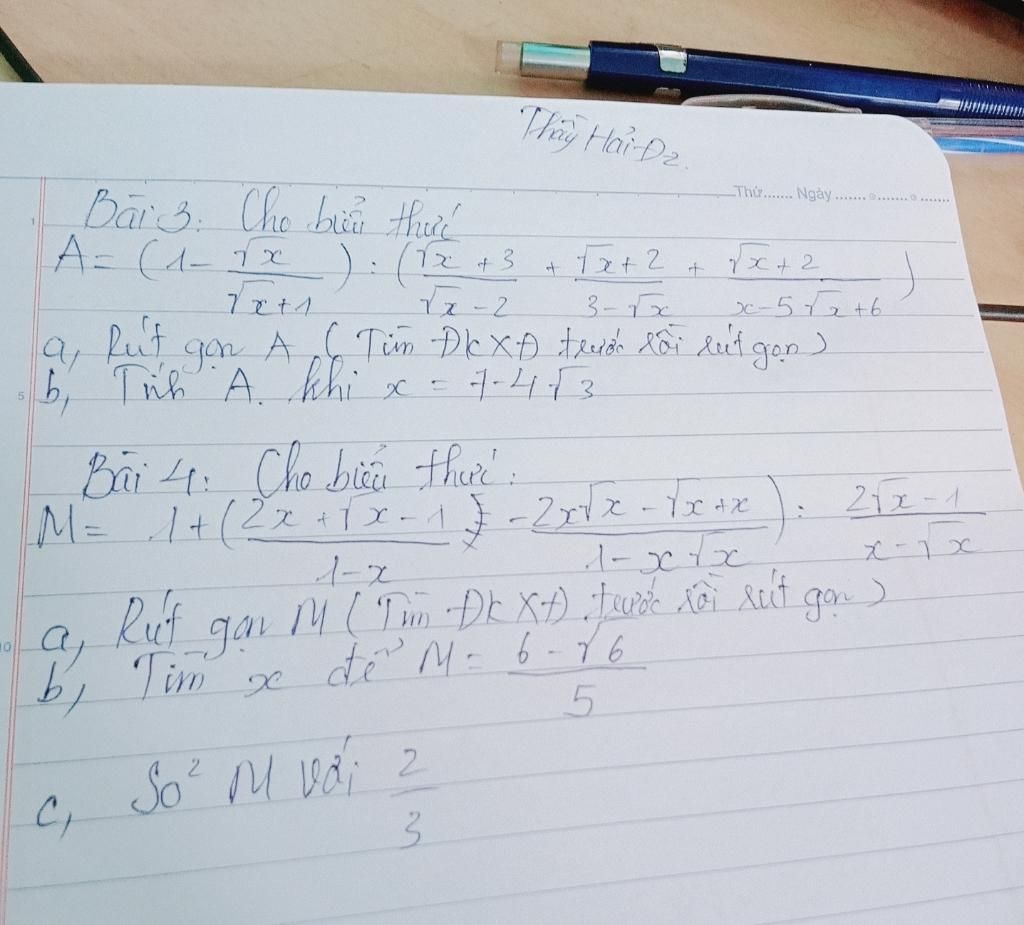 Thầy Hải-Dz.
Thứ....... Ngày.......
Bài 3: Cho biểu thức
A = (1 - \frac{\sqrt{x}}{\sqrt{x}+1}) : (\frac{\sqrt{x}+3}{\sqrt{x}-2} + \frac{\sqrt{x}+2}{3-\sqrt{x}} + \frac{\sqrt{x}+2}{x-5\sqrt{x}+6})
a, Rút gọn A (Tìm ĐKXĐ trước rồi rút gọn)
5
b, Tính A. khi x = 7-4\sqrt{3}
Bài 4: Cho biểu thức:
M = 1 + (\frac{2x+\sqrt{x}-1}{1-x} - \frac{2x\sqrt{x}-\sqrt{x}+x}{1-x\sqrt{x}}) . \frac{2\sqrt{x}-1}{x-\sqrt{x}}
a, Rút gọn M (Tìm ĐKXĐ trước rồi rút gọn)
10
b, Tìm x để M = \frac{6-\sqrt{6}}{5}
c, So² M với \frac{2}{3}